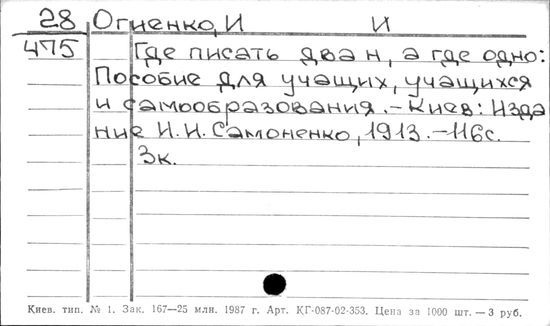 28 Огиенко, И И
475 Где писать два н, а где одно:
Пособие для учащих, учащихся
и самообразования. – Киев: Изда
ние И. И. Самоненко, 1913. – 116с.
3к.
Киев. тип. № 1. Зак. 167—25 млн. 1987 г. Арт. КГ-087-02-353. Цена за 1000 шт. — 3 руб.